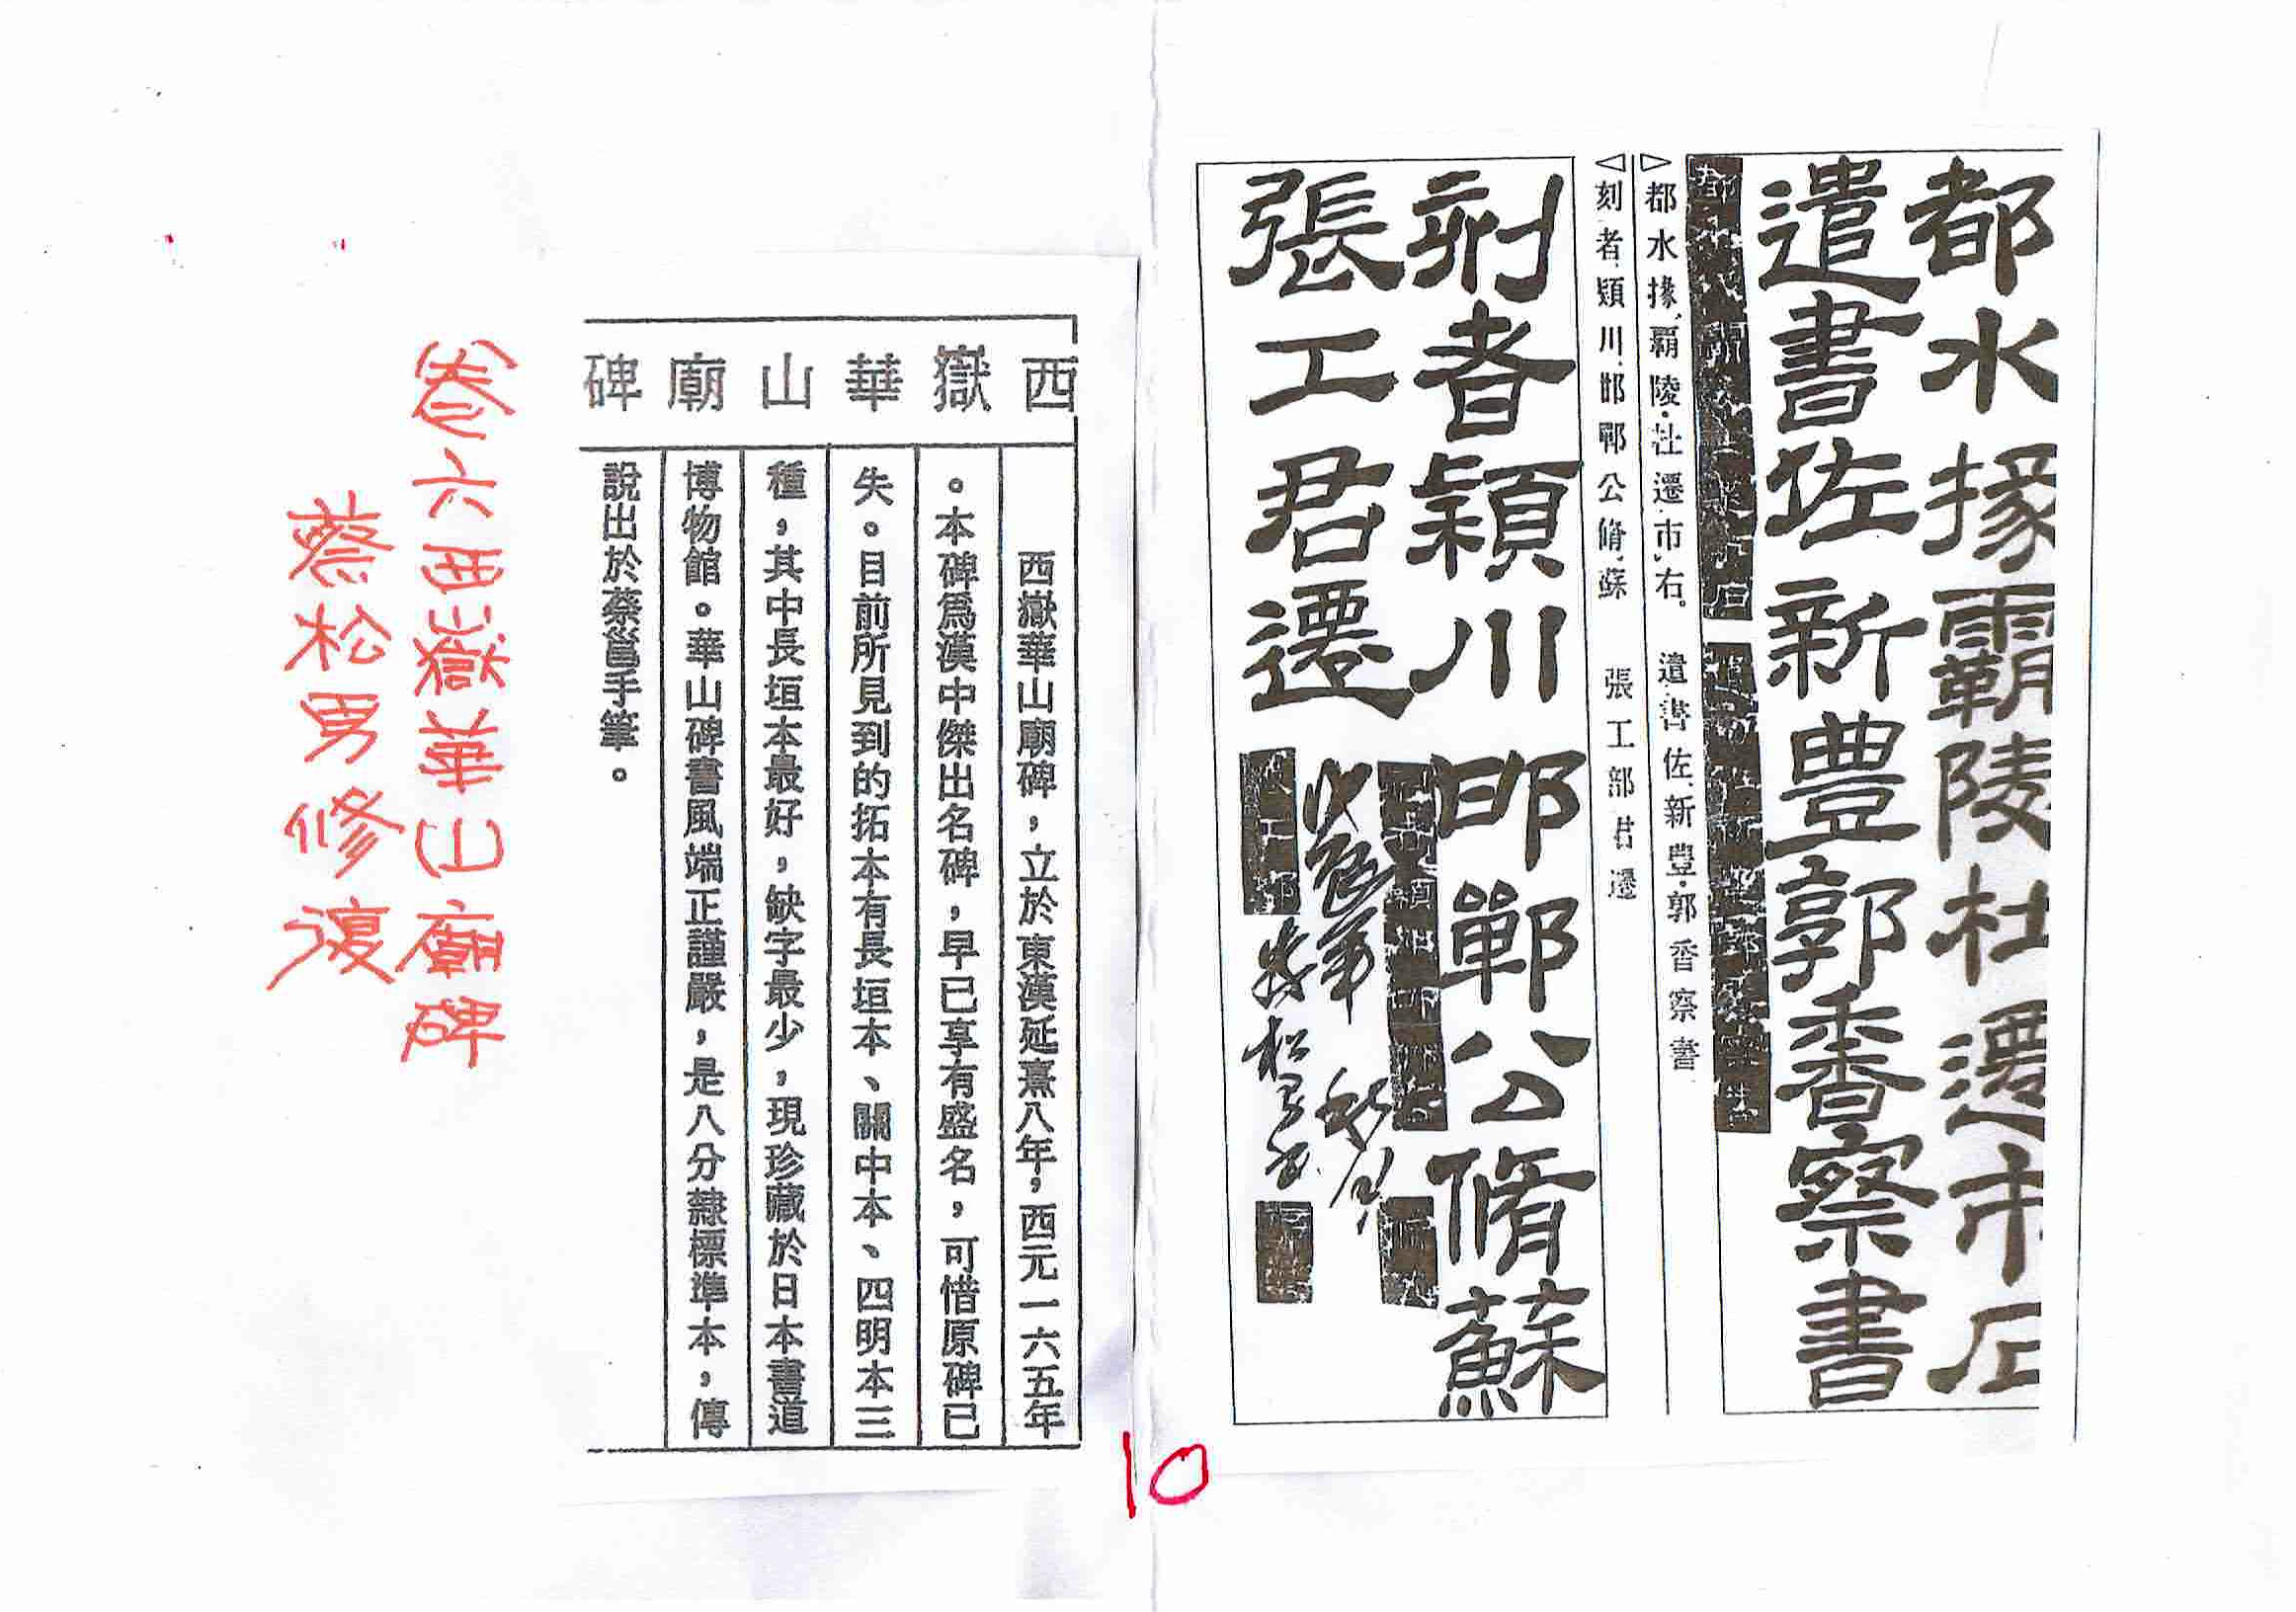 都水掾霸陵杜遷市石
遣書佐新豐郭香察書
都水掾、霸陵・杜遷、市、右。　遣、書佐、新豐・郭香察書
刻者、潁川、邯鄲公脩、蘇　張工部君遷
刻者潁川邯鄲公脩蘇
張工君遷
西嶽華山廟碑
西嶽華山廟碑，立於東漢延熹八年，西元一六五年
。本碑爲漢中傑出名碑，早已享有盛名，可惜原碑已
失。目前所見到的拓本有長垣本、關中本、四明本三
種，其中長垣本最好，缺字最少，現珍藏於日本書道
博物館。華山碑書風端正謹嚴，是八分隸標準本，傳
說出於蔡邕手筆。
(卷)六西嶽華山廟碑
蔡松男修復
10